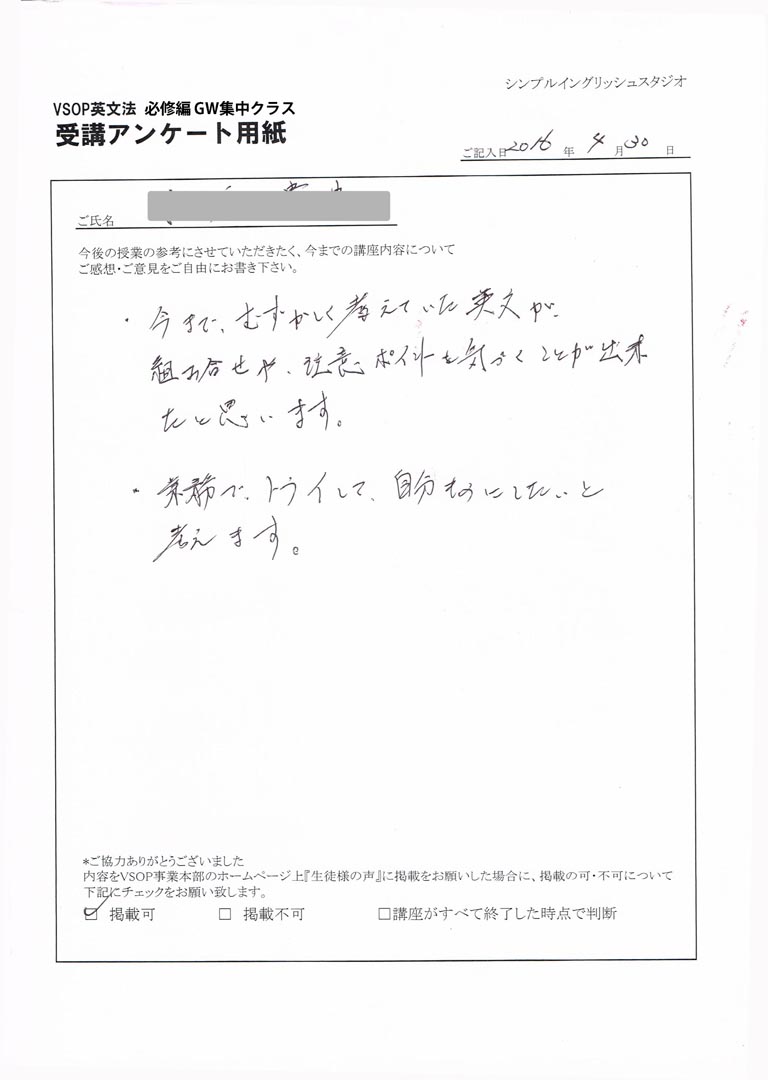 シンプルイングリッシュスタジオ
VSOP英文法 必修編 GW集中クラス
受講アンケート用紙
ご記入日 2016 年 4 月 30 日
ご氏名
今後の授業の参考にさせていただきたく、今までの講座内容について
ご感想・ご意見をご自由にお書き下さい。
・今まで、むずかしく考えていた英文が、
組み合せや、注意ポイントを気づくことが出来
たと思います。
・業務で、トライして、自分ものにしたいと
考えます。
*ご協力ありがとうございました
内容をVSOP事業本部のホームページ上『生徒様の声』に掲載をお願いした場合に、掲載の可・不可について
下記にチェックをお願い致します。
☑ 掲載可 □ 掲載不可 □講座がすべて終了した時点で判断